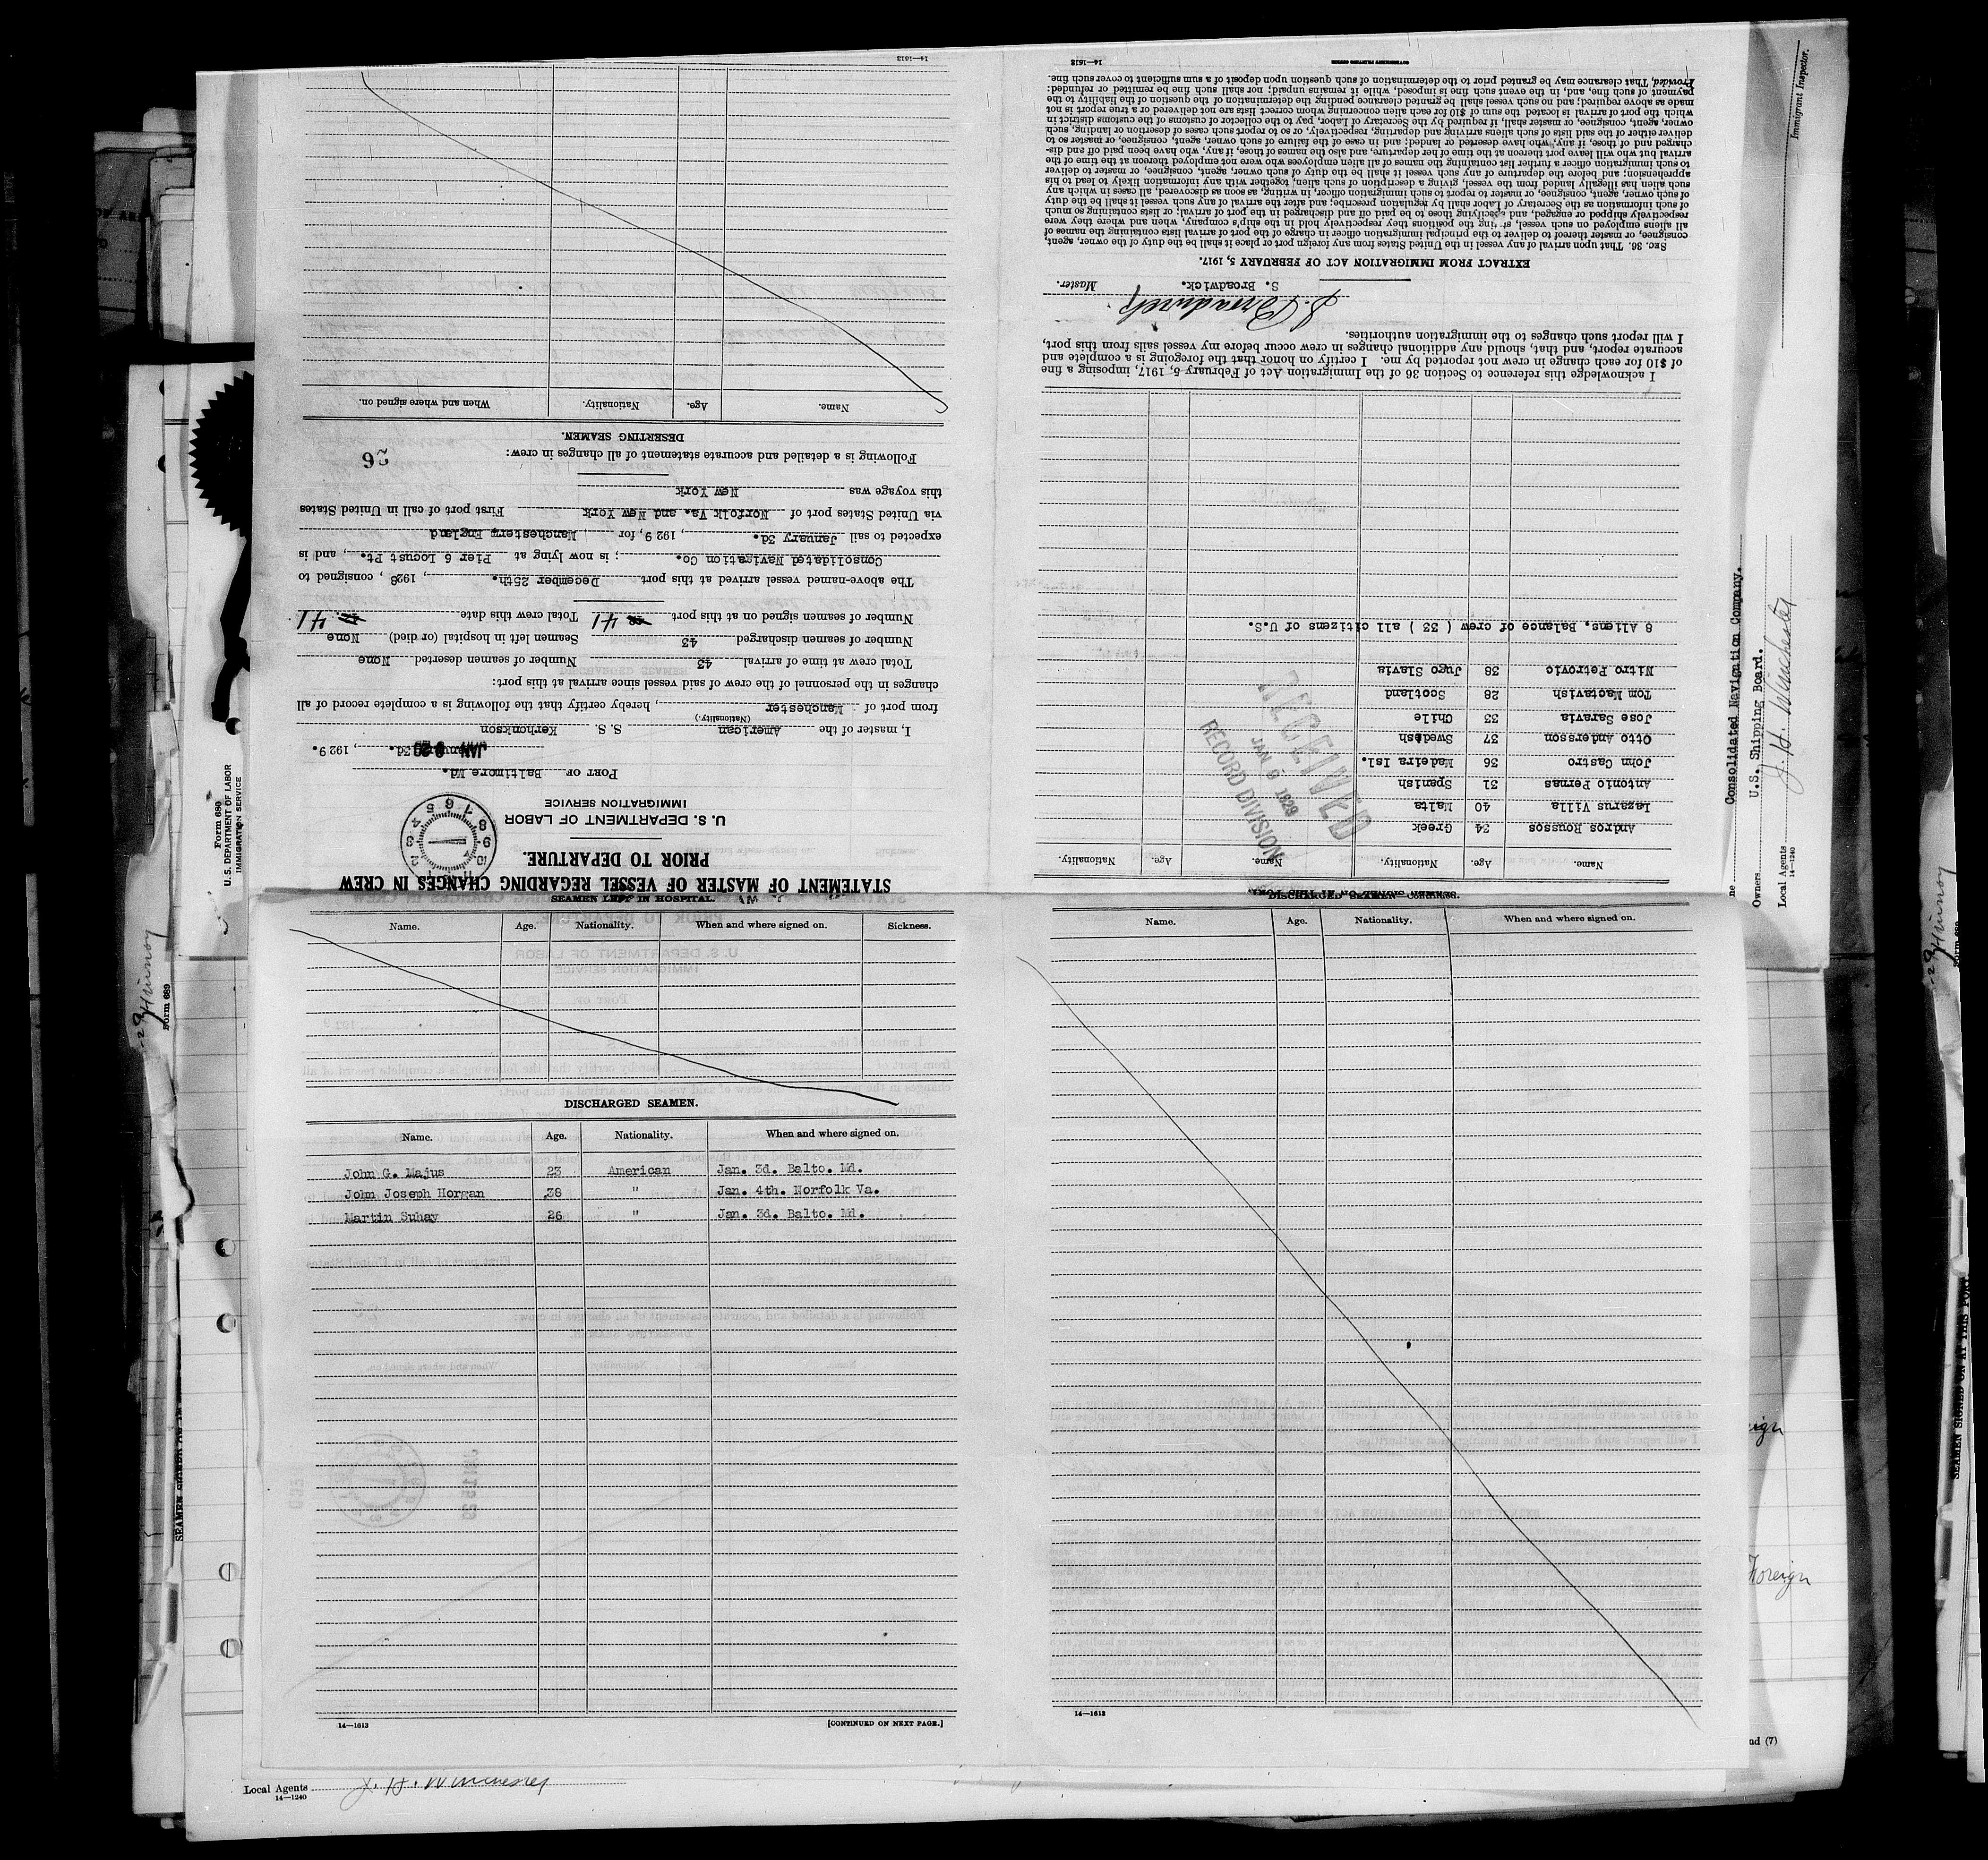 STATEMENT OF MASTER OF VESSEL REGARDING CHANGES IN CREW
PRIOR TO DEPARTURE.
U. S. DEPARTMENT OF LABOR
IMMIGRATION SERVICE
PORT OF Baltimore Md.
January 3d. , 1929.
JAN 29
I, master of the American S. S. Kerhonkson
(Nationality.)
from port of Manchester , hereby certify that the following is a complete record of all
changes in the personnel of the crew of said vessel since arrival at this port:
Total crew at time of arrival 43 Number of seamen deserted None
Number of seamen discharged 43 Seamen left in hospital (or died) None
Number of seamen signed on at this port 41 Total crew this date 41
The above-named vessel arrived at this port December 25th. , 1928 , consigned to
Consolidated Navigation Co. ; is now lying at Pier 6 Locust Pt. , and is
expected to sail January 3d. , 1929, for Manchester, England
via United States port of Norfolk Va. and New York First port of call in United States
this voyage was New York
Following is a detailed and accurate statement of all changes in crew:
26
DESERTING SEAMEN.
Name. Age. Nationality. When and where signed on.
14—1613
Name. Age. Nationality. Name. Age. Nationality.
Andros Roussos 34 Greek
Lazarus Villa 40 Malta
Antonio Pernas 31 Spanish
John Castro 36 Madeira Isl.
Otto Andersson 37 Swedish
Jose Saravia 33 Chile
Tom Mactavish 28 Scotland
Nitro Petrovic 38 Jugo Slavia
8 Aliens. Balance of crew ( 33 ) all citizens of U.S.
RECEIVED
JAN 9 1929
RECORD DIVISION
I acknowledge this reference to Section 36 of the Immigration Act of February 5, 1917, imposing a fine
of $10 for each change in crew not reported by me. I certify on honor that the foregoing is a complete and
accurate report, and that, should any additional changes in crew occur before my vessel sails from this port,
I will report such changes to the immigration authorities.
S. Broadwick
S. Broadwick. Master.
EXTRACT FROM IMMIGRATION ACT OF FEBRUARY 5, 1917.
SEC. 36. That upon arrival of any vessel in the United States from any foreign port or place it shall be the duty of the owner, agent,
consignee, or master thereof to deliver to the principal immigration officer in charge of the port of arrival lists containing the names of
all aliens employed on such vessel, stating the positions they respectively hold in the ship's company, when and where they were
respectively shipped or engaged, and specifying those to be paid off and discharged in the port of arrival; or lists containing so much
of such information as the Secretary of Labor shall by regulation prescribe; and after the arrival of any such vessel it shall be the duty
of such owner, agent, consignee, or master to report to such immigration officer, in writing, as soon as discovered, all cases in which any
such alien has illegally landed from the vessel, giving a description of such alien, together with any information likely to lead to his
apprehension; and before the departure of any such vessel it shall be the duty of such owner, agent, consignee, or master to deliver
to such immigration officer a further list containing the names of all alien employees who were not employed thereon at the time of the
arrival but who will leave port thereon at the time of her departure, and also the names of those, if any, who have been paid off and dis-
charged and of those, if any, who have deserted or landed; and in case of the failure of such owner, agent, consignee, or master so to
deliver either of the said lists of such aliens arriving and departing, respectively, or so to report such cases of desertion or landing, such
owner, agent, consignee, or master shall, if required by the Secretary of Labor, pay to the collector of customs of the customs district in
which the port of arrival is located the sum of $10 for each alien concerning whom correct lists are not delivered or a true report is not
made as above required; and no such vessel shall be granted clearance pending the determination of the question of the liability to the
payment of such fine, and, in the event such fine is imposed, while it remains unpaid; nor shall such fine be remitted or refunded:
Provided, That clearance may be granted prior to the determination of such question upon deposit of a sum sufficient to cover such fine.
14—1613 GOVERNMENT PRINTING OFFICE
Form 680
U. S. DEPARTMENT OF LABOR
IMMIGRATION SERVICE
Immigrant Inspector.
Consolidated Navigation Company.
Owners U.S. Shipping Board.
Local Agents J. H. Winchester
14—1240
SEAMEN LEFT IN HOSPITAL.
Name. Age. Nationality. When and where signed on. Sickness.
DISCHARGED SEAMEN.
Name. Age. Nationality. When and where signed on.
John G. Majus 23 American Jan. 3d. Balto. Md.
John Joseph Horgan 38 " Jan. 4th. Norfolk Va.
Martin Suhay 26 " Jan. 3d. Balto. Md.
14—1613 [CONTINUED ON NEXT PAGE.]
DISCHARGED SEAMEN—Continued.
Name. Age. Nationality. When and where signed on.
14—1613
Form 689
Foreign
nd (7)
Local Agents J. H. Winchester
14—1240